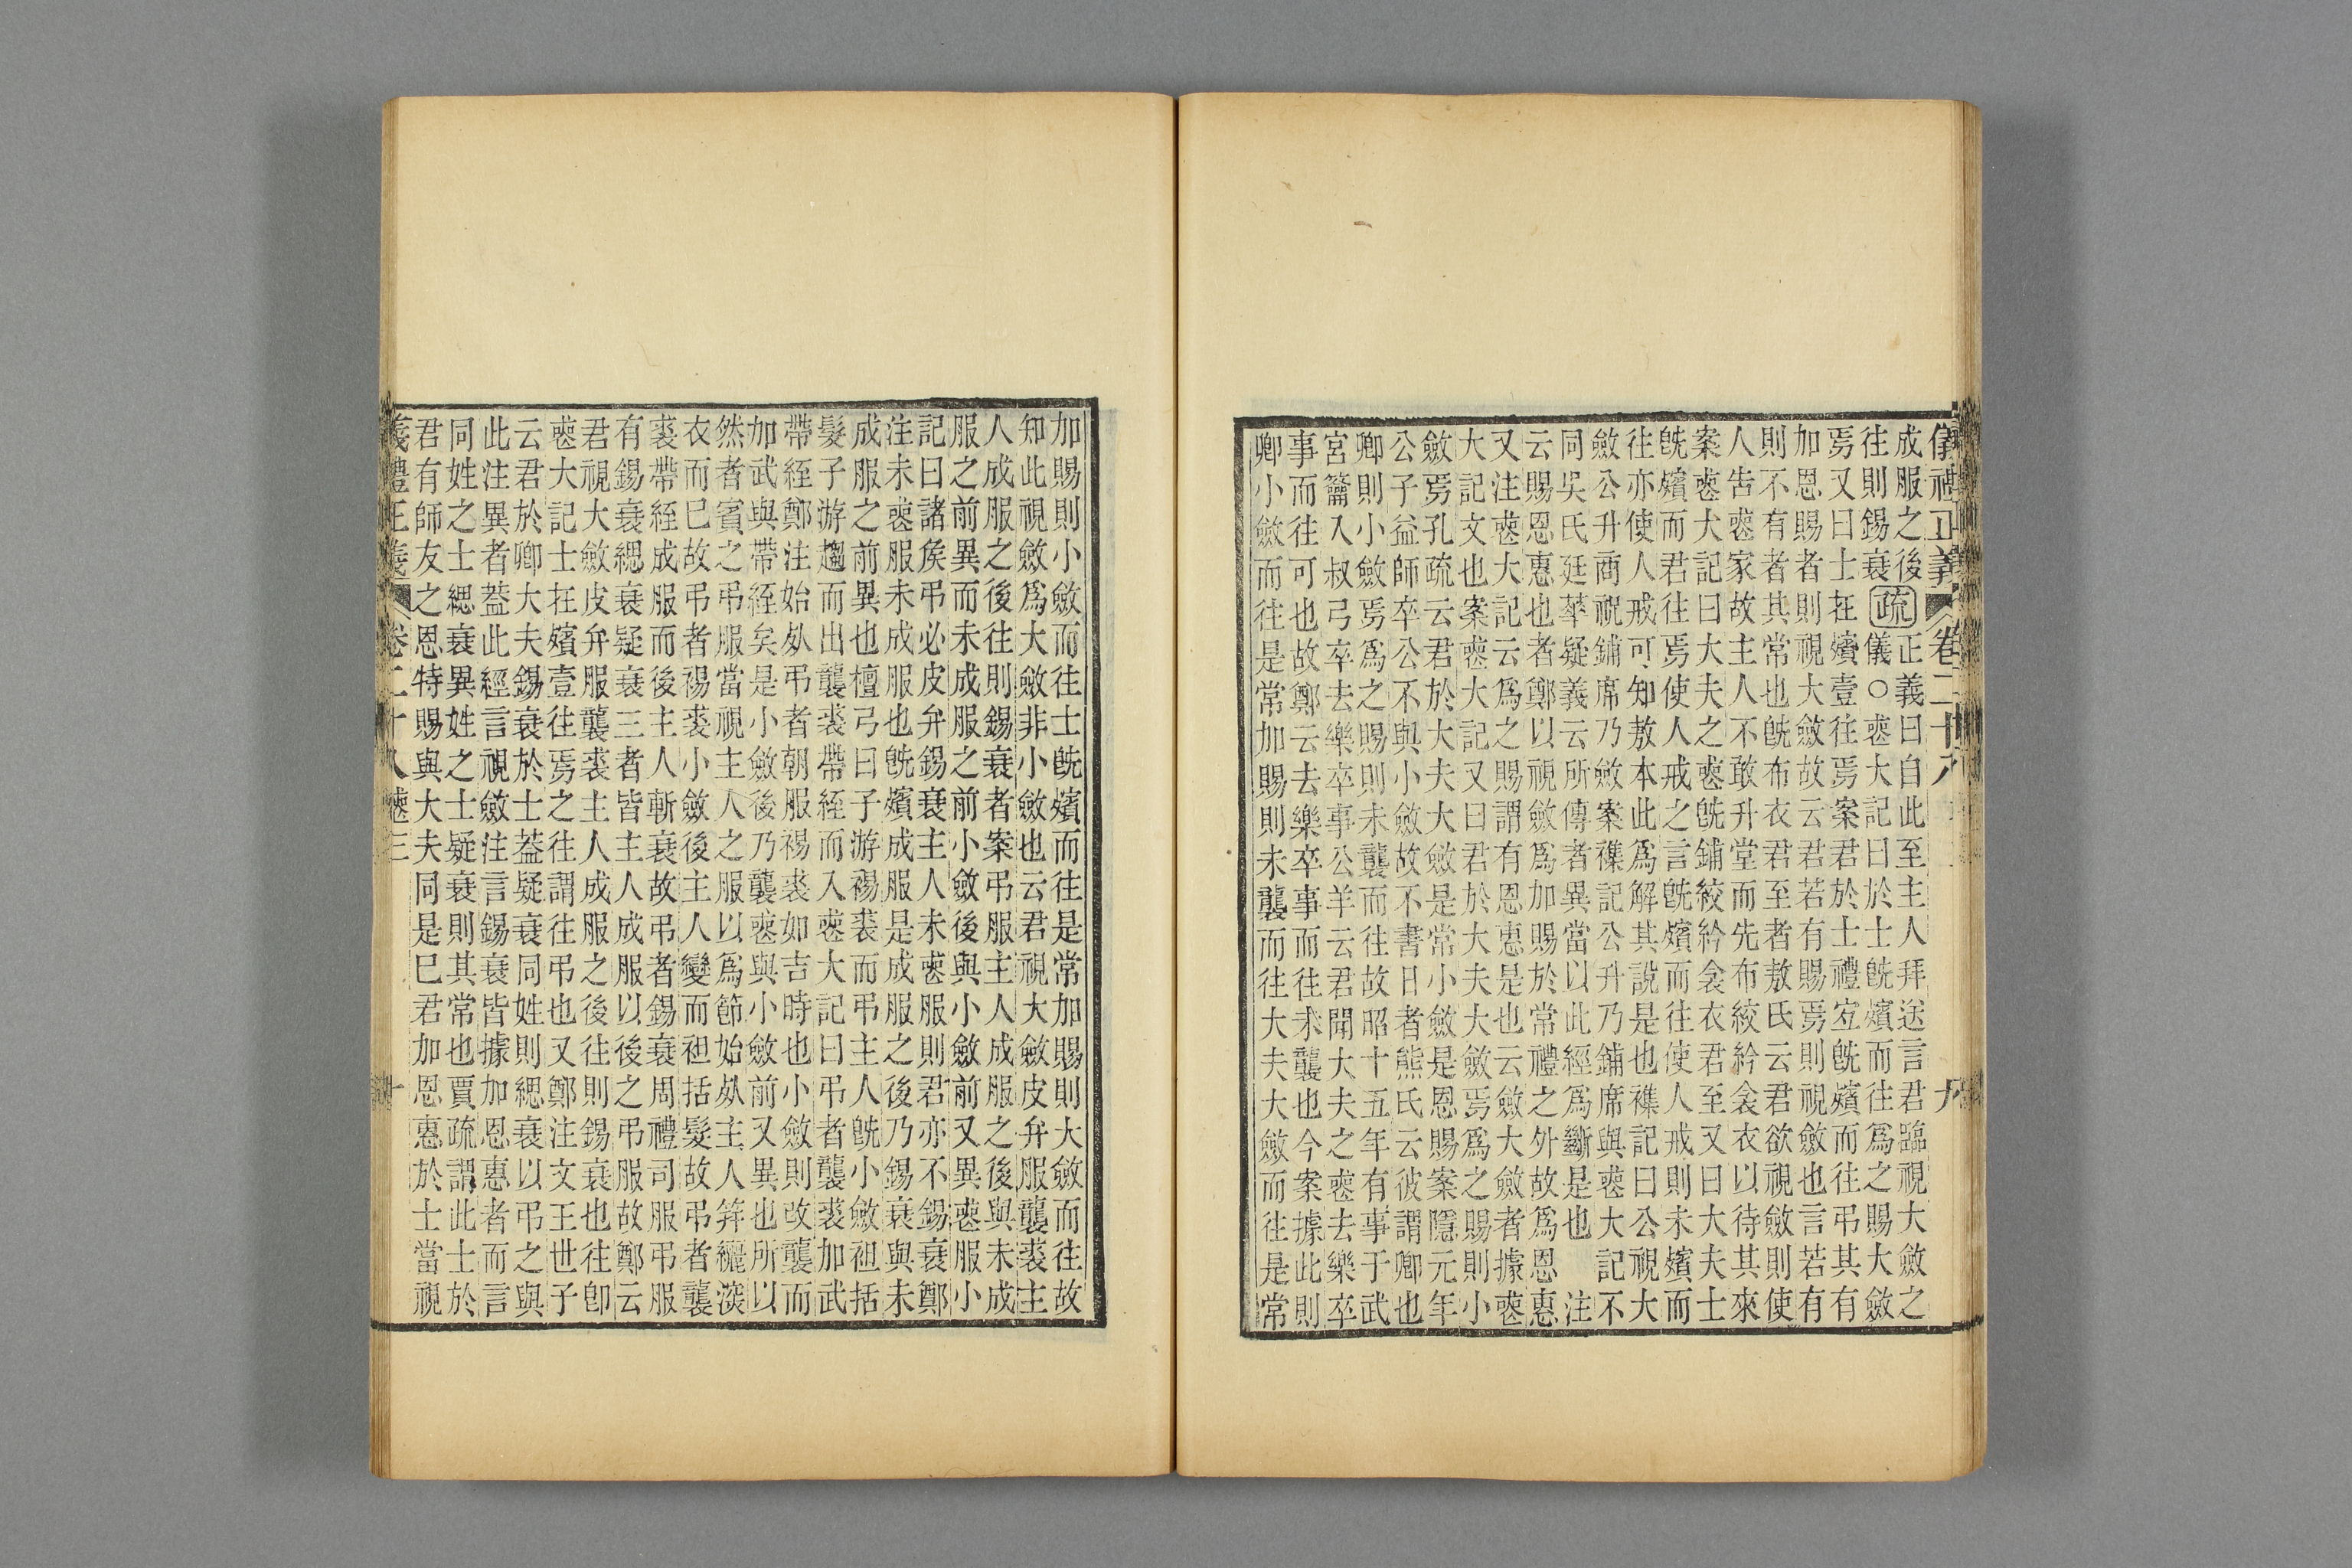 儀禮正義 卷二十八 九
成服之後正義曰自此至主人拜送言君臨視大斂之
往則錫衰疏儀○喪大記曰於士旣殯而往爲之賜大斂
焉又曰士在殯壹往焉案君於士禮宐旣殯而往弔其有
加恩賜者則視大斂故云君若有賜焉則視斂也言若有
則不有者其常也旣布衣君至者敖氏云君欲視斂則使
人告喪家故主人不敢升堂而先布絞紟衾衣以待其來
案喪大記曰大夫之喪旣鋪絞紟衾衣君至又曰大夫士
旣殯而君往焉使人戒之言旣殯而往使人戒則未殯而
往亦使人戒可知敖本此爲解其說是也襍記曰公視大
斂公升商祝鋪席乃斂案襍記公升乃鋪席與喪大記不
同吳氏廷華疑義云所傳者異當以此經爲斷是也 注
云賜恩惠也者鄭以視斂爲加賜於常禮之外故爲恩惠
又注喪大記云爲之賜謂有恩惠是也云斂大斂者據喪
大記文也案喪大記又曰君於大夫大斂焉爲之賜則小
斂焉孔疏云君於大夫大斂是常小斂是恩賜案隱元年
公子益師卒公不與小斂故不書日者熊氏云彼謂卿也
卿則小斂焉爲之賜則未襲而往故昭十五年有事于武
宮籥入叔弓卒去樂卒事公羊云君聞大夫之喪去樂卒
事而往可也故鄭云去樂卒事而往未襲也今案據此則
卿小斂而往是常加賜則未襲而往大夫大斂而往是常
加賜則小斂而往士旣殯而往是常加賜則大斂而往故
知此視斂爲大斂非小斂也云君視大斂皮弁服襲裘主
人成服之後往則錫衰者案弔服主人成服之後與未成
服之前異而未成服之前小斂後與小斂前又異喪服小
記曰諸矦弔必皮弁錫衰主人未喪服則君亦不錫衰鄭
注未喪服未成服也旣殯成服是成服之後乃錫衰與未
成服之前異也檀弓曰子游裼裘而弔主人旣小斂袒括
髮子游趨而出襲裘帶絰而入喪大記曰弔者襲裘加武
帶絰鄭注始𣦸弔者朝服裼裘如吉時也小斂則改襲而
加武與帶絰矣是小斂後乃襲喪與小斂前又異也所以
然者賓之弔服當視主人之服以爲節始𣦸主人筓纚深
衣而已故弔者裼裘小斂後主人變而袒括髮故弔者襲
裘帶絰成服而後主人斬衰故弔者錫衰周禮司服弔服
有錫衰緦衰疑衰三者皆主人成服以後之弔服故鄭云
君視大斂皮弁服襲裘主人成服之後往則錫衰也往卽
喪大記士在殯壹往焉之往謂往弔也又鄭注文王世子
云君於卿大夫錫衰於士葢疑衰同姓則緦衰以弔之與
此注異者葢此經言視斂注言錫衰皆據加恩惠者而言
同姓之士緦衰異姓之士疑衰則其常也賈疏謂此士於
君有師友之恩特賜與大夫同是已君加恩惠於士當視
義禮正義 卷二十八 喪三 十